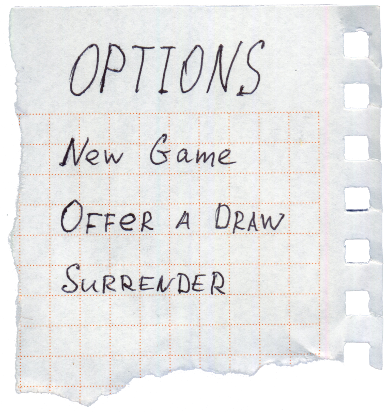 OPTIONS
New Game
OFFeR A DRAW
SuRRENDER